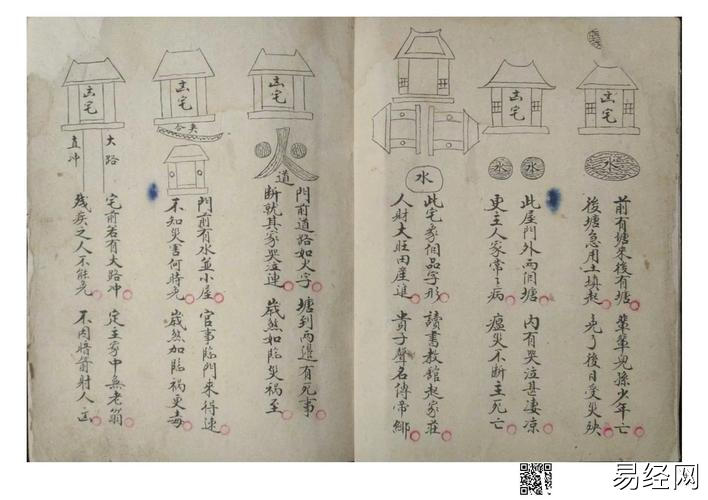 凶宅
水
前有塘來後有塘
輩輩兒孫少年亡
後塘急用土填起
免了後日受災殃
凶宅
水
水
此屋門外兩個塘
內有哭泣甚凄凉
更主人家常々病
瘟災不斷主死亡
水
此宅象個品字形
讀書教舘起家莊
人財大旺田産進
貴子聲名傳帝鄉
凶宅
道
門前道路如火字
塘到兩邊有死事
斷就其家哭泣連
歲煞如臨災禍至
凶宅
門前有水並小屋
官事臨門來得速
不知災害何時免
歲煞加臨禍更毒
凶宅
大路
直冲
宅前若有大路冲
定主家中無老翁
殘疾之人不能免
不内暗箭射人
易经网